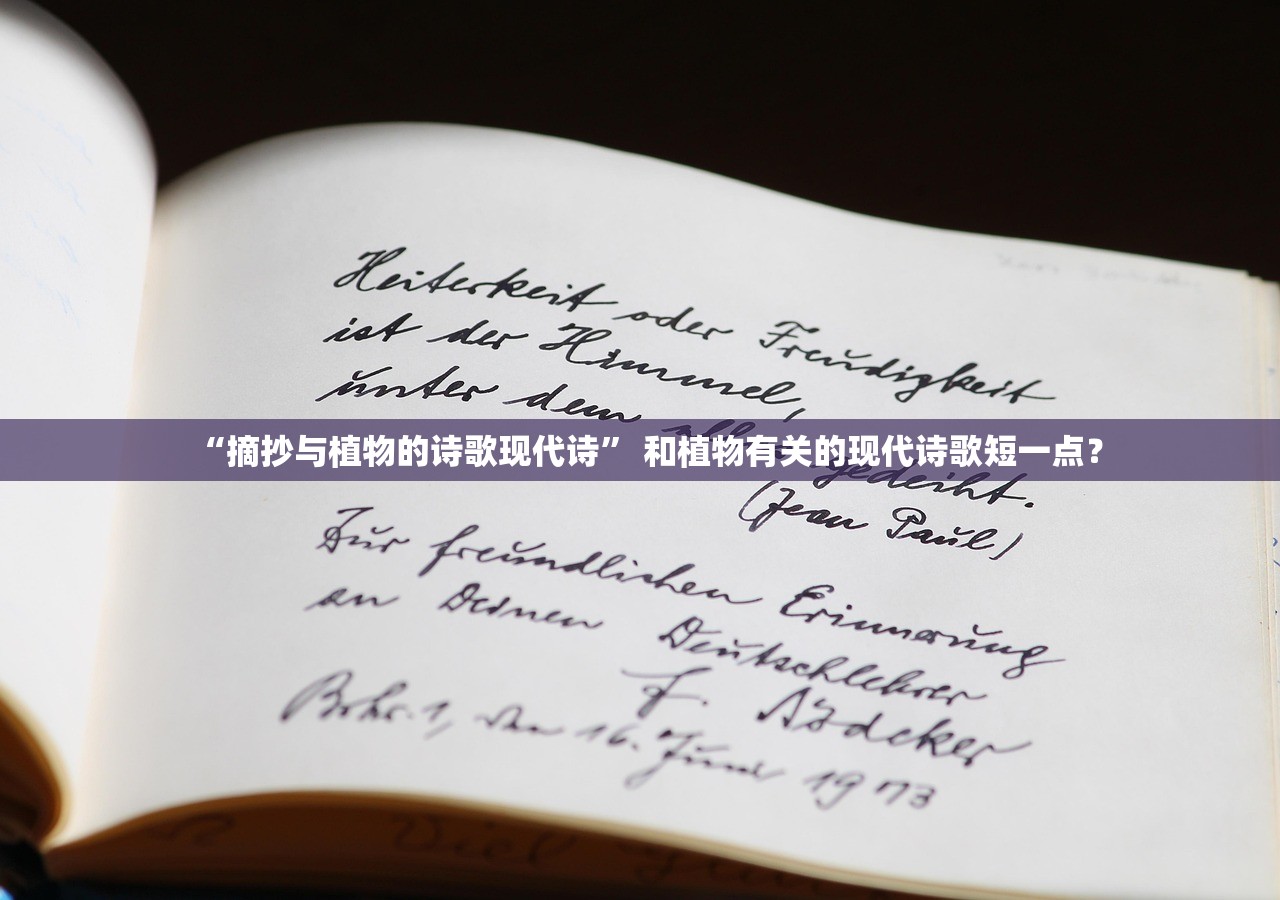 Heiterkeit oder Freudigkeit
ist der Himmel,
unter dem alles gedeiht.
“摘抄与植物的诗歌现代诗” 和植物有关的现代诗歌短一点？
(Jean Paul)
Zur freundlichen Erinnerung
an Deinen Deutschlehrer
F.
den 16. Juni 1973